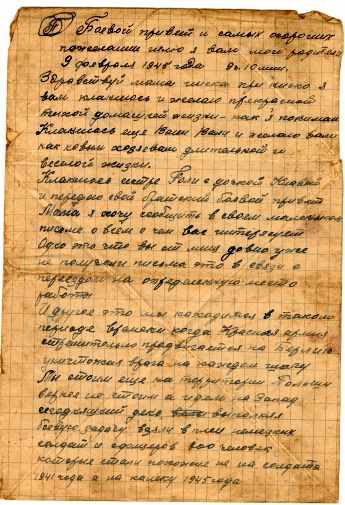 Боевой привет и самых хороших
пожелании шлю я вам мои родители
9 февраля 1945 года 9ч. 10 мин.
Здравствуй мама
вам кланяюсь и желаю прекрасной
тихой домашней жизни как я понимаю
Кланяюсь еще Вани Вали и желаю вам
как новым хозяевам длительной и
веселой жизни.
Кланяюсь сестре Поли с дочкой
и передаю свой братский боевой привет
Мама я хочу сообщить в своем маленьком
письме о всем о чем вас интересует
Одно это что вы от меня давно уже
не получали письма это в связи с
переездом на определенную место
работы
И другое это мы находимся в таком
периоде времени когда Красная армия
стремительно продвигается на Берлин
уничтожая врага на каждом шагу
Мы стоим еще на территории Польши
вернее не стоим а идем на Запад
сегодняшний день выполняя
боевую задачу взяли в плен немецких
солдат и офицеров 800 человек
которые стали похожие не на солдата
1941 года а на калеку 1945 года